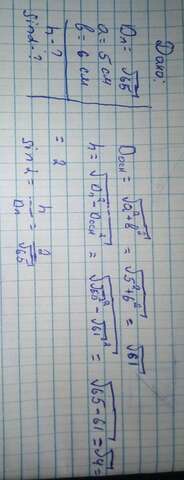 Дано:
Dп = √65
a = 5 см
b = 6 см
h - ?
sinα - ?
Dосн = √a²+b² = √5²+6² = √61
h = √Dп² - Dосн² = √√65² - √61² = √65-61 = √4 =
= 2
sinα = h/Dп = 2/√65